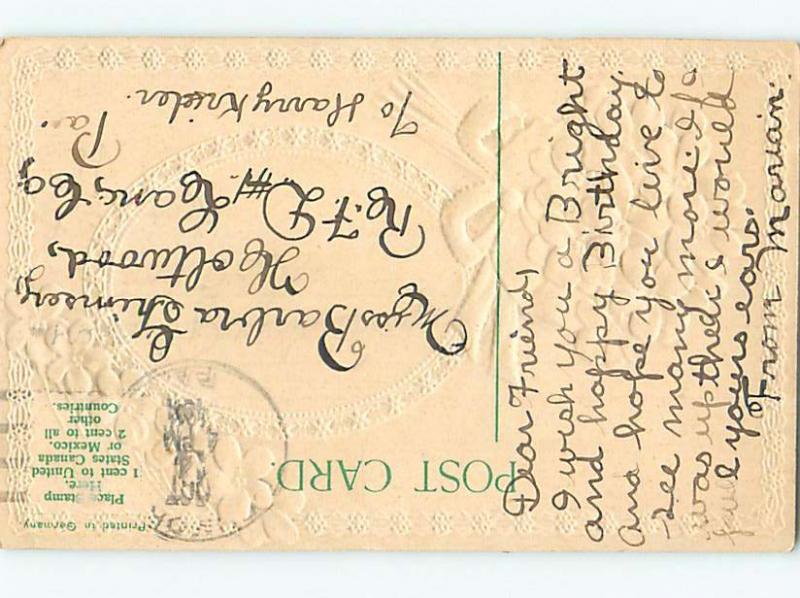 POST CARD.
Printed in Germany
Place Stamp
Here.
1 cent to United
States Canada
or Mexico.
2 cent to all
other
Countries.
Dear Friend,
I wish you a Bright
and happy Birthday.
and hope you live to
see many more if I
was up there I would
pull yours ears.
From Marian.
Miss Barbra Shimsey,
Holtwood,
R. F. D. #1 Lanc, Co,
Pa.
To Harry Krieder.